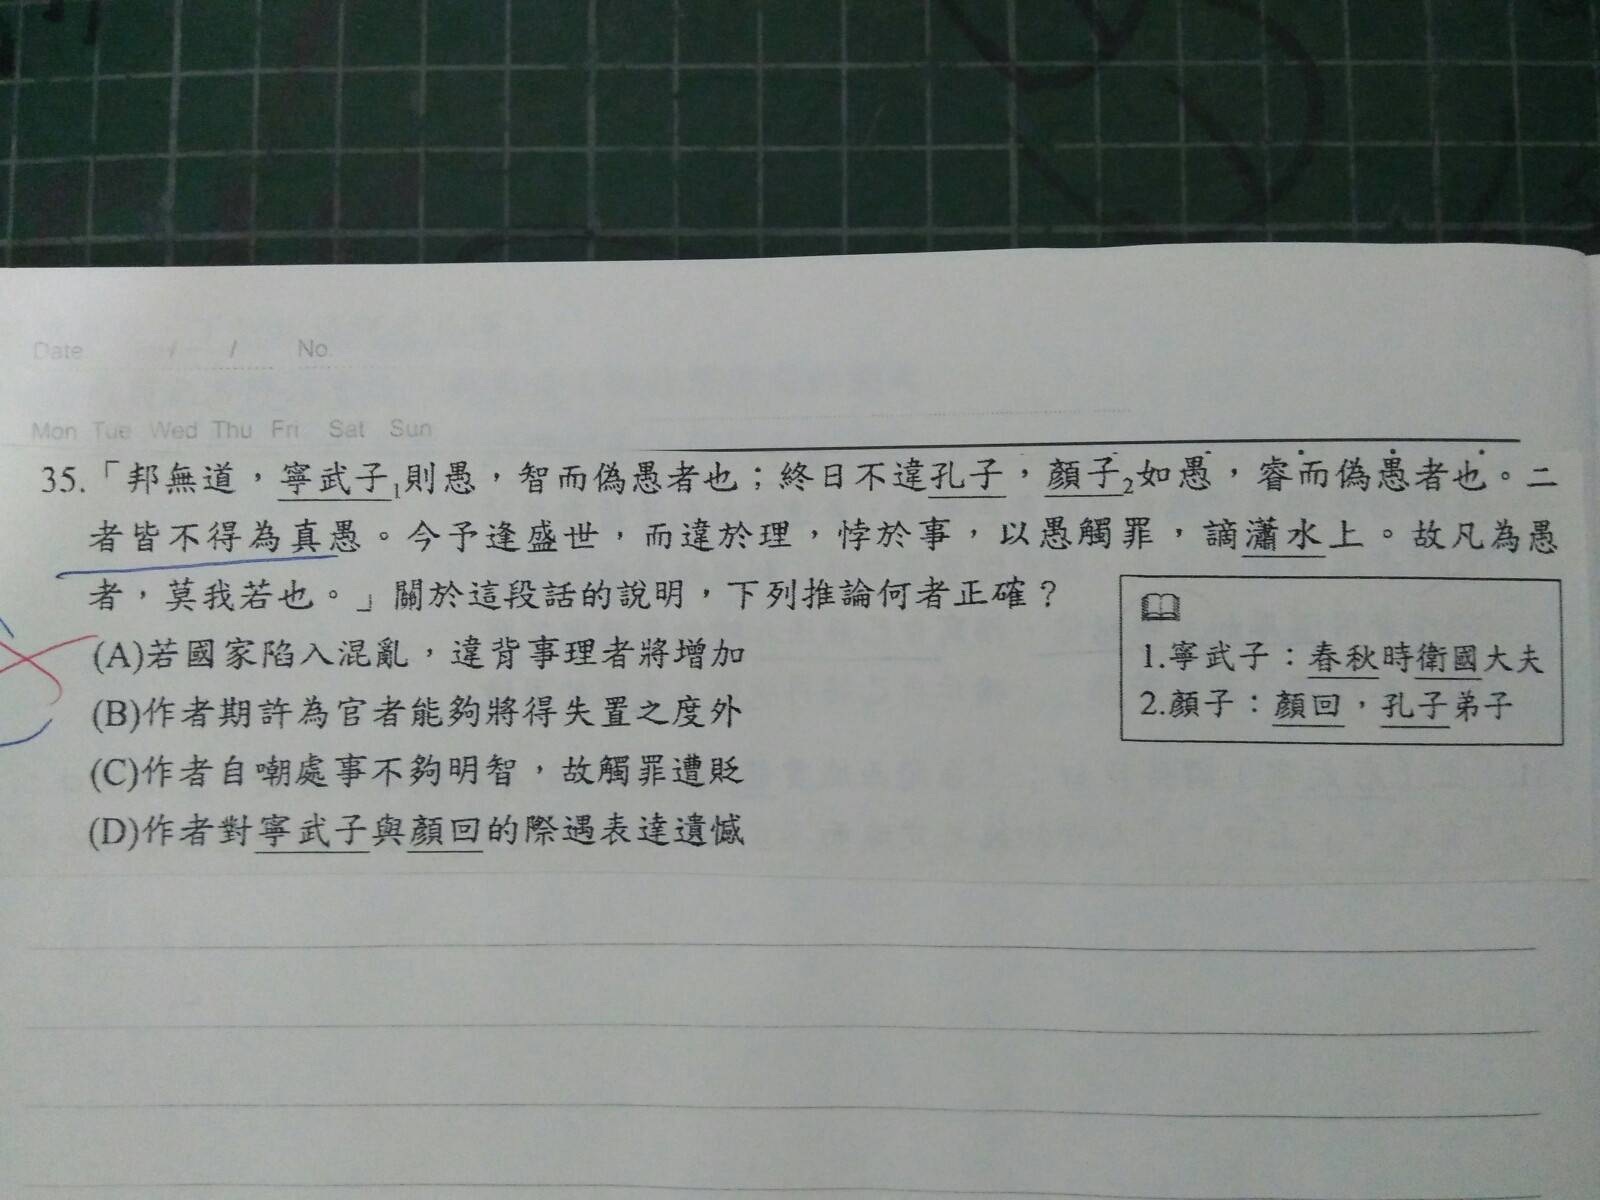 Date / / No.
Mon Tue Wed Thu Fri Sat Sun
35.「邦無道，寧武子1則愚，智而偽愚者也；終日不違孔子，顏子2如愚，睿而偽愚者也。二
者皆不得為真愚。今予逢盛世，而違於理，悖於事，以愚觸罪，謫瀟水上。故凡為愚
者，莫我若也。」關於這段話的說明，下列推論何者正確？
(A)若國家陷入混亂，違背事理者將增加
(B)作者期許為官者能夠將得失置之度外
(C)作者自嘲處事不夠明智，故觸罪遭貶
(D)作者對寧武子與顏回的際遇表達遺憾
1.寧武子：春秋時衛國大夫
2.顏子：顏回，孔子弟子